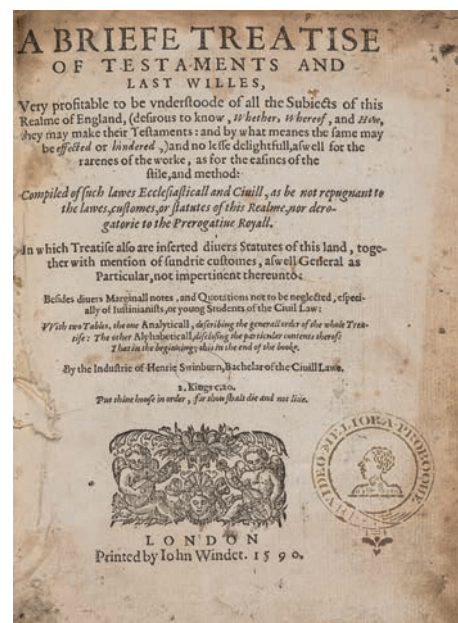 A BRIEFE TREATISE
OF TESTAMENTS AND
LAST WILLES,
Very profitable to be vnderstoode of all the Subiects of this
Realme of England, (desirous to know, Whether, Whereof, and How,
they may make their Testaments: and by what meanes the same may
be effected or hindered,) and no lesse delightfull, aswell for the
rarenes of the worke, as for the easines of the
stile, and method:
Compiled of such lawes Ecclesiasticall and Ciuill, as be not repugnant to
the lawes, customes, or statutes of this Realme, nor dero-
gatorie to the Prerogatiue Royall.
In which Treatise also are inserted diuers Statutes of this land, toge-
ther with mention of sundrie customes, aswell General as
Particular, not impertinent thereunto:
Besides diuers Marginall notes, and Quotations not to be neglected, especi-
ally of Iustinianists, or young Students of the Ciuil Law:
With two Tables, the one Analyticall, describing the generall order of the whole Trea-
tise: The other Alphabeticall, disclosing the particular contents thereof:
That in the beginning, this in the end of the booke.
By the Industrie of Henrie Swinburn, Bachelar of the Ciuill Lawe.
2. Kings c. 20.
Put thine house in order, for thou shalt die and not liue.
VIDEO MELIORA PROBOQUE
LONDON
Printed by Iohn Windet. 1590.